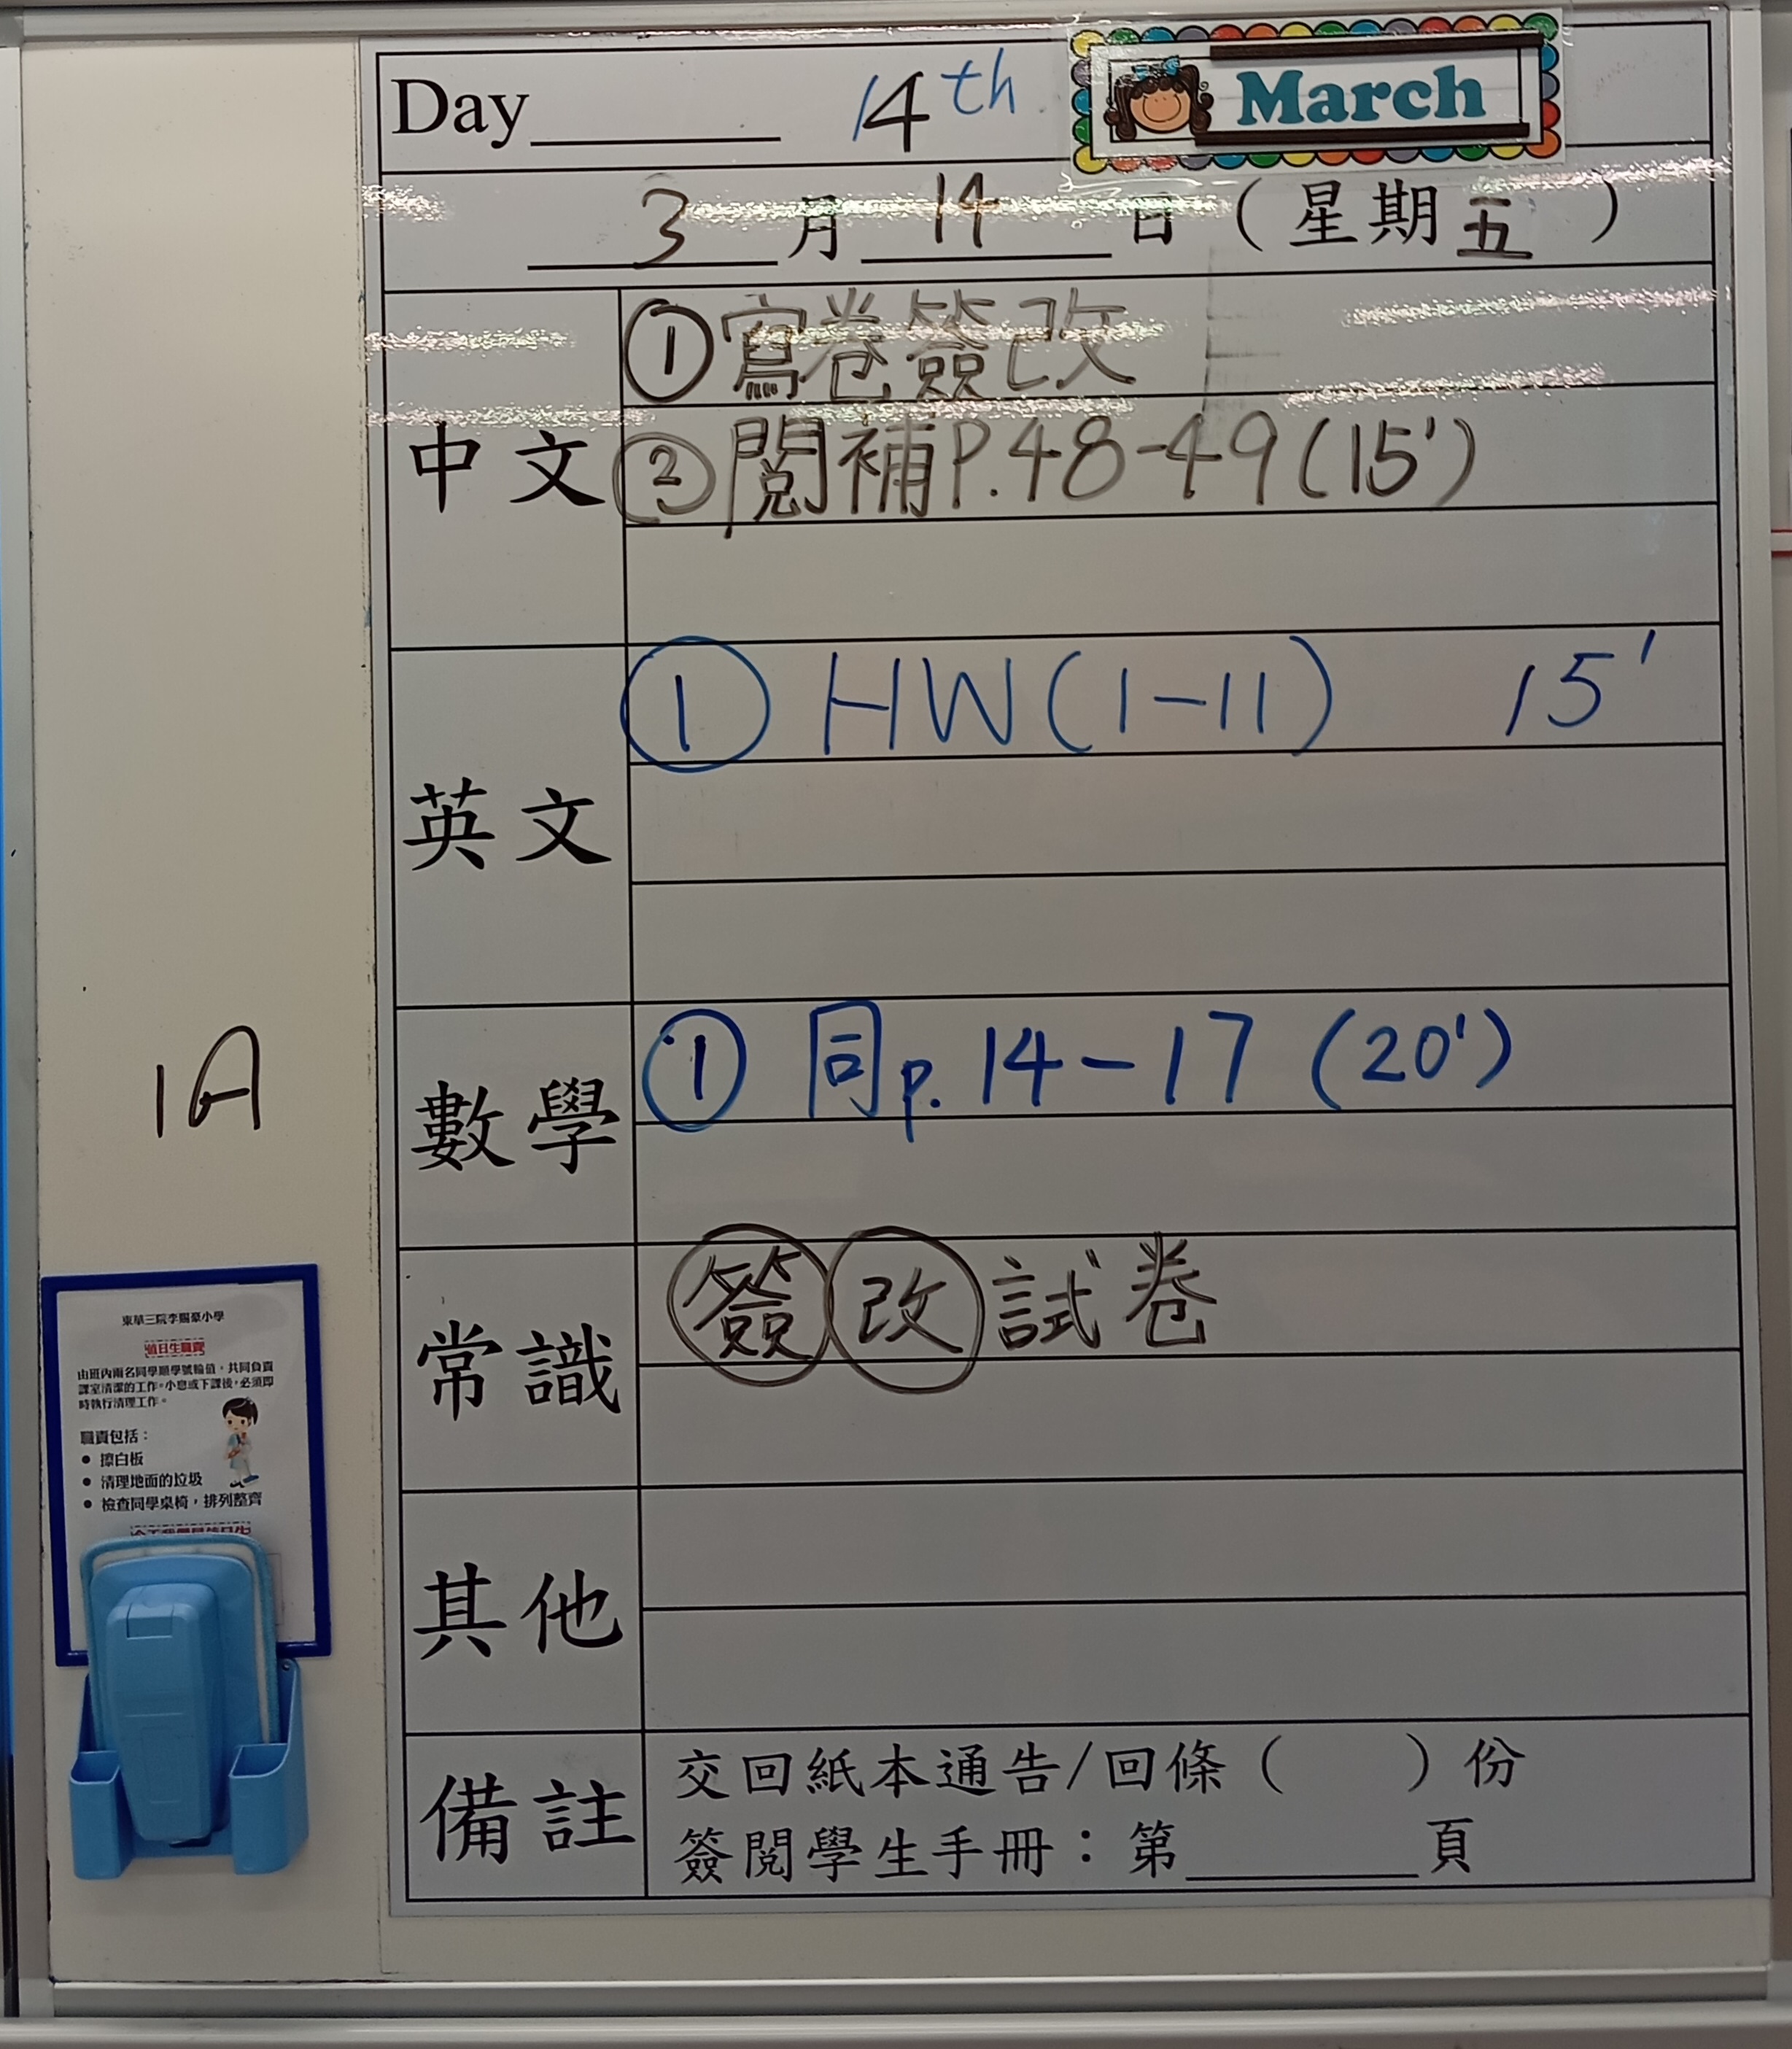 Day 14th March
3月14日(星期五)
中文
①寫卷簽改
②閱補P.48-49(15')
英文
① HW(1-11) 15'
數學
① 同p.14-17 (20')
常識
簽改試卷
其他
備註
交回紙本通告/回條( )份
簽閱學生手冊:第 頁
1A
東華三院李賜豪小學
值日生職責
由班內兩名同學順學號輪值,共同負責
課室清潔的工作。小息或下課後,必須即
時執行清理工作。
職責包括:
• 擦白板
• 清理地面的垃圾
• 檢查同學桌椅,排列整齊